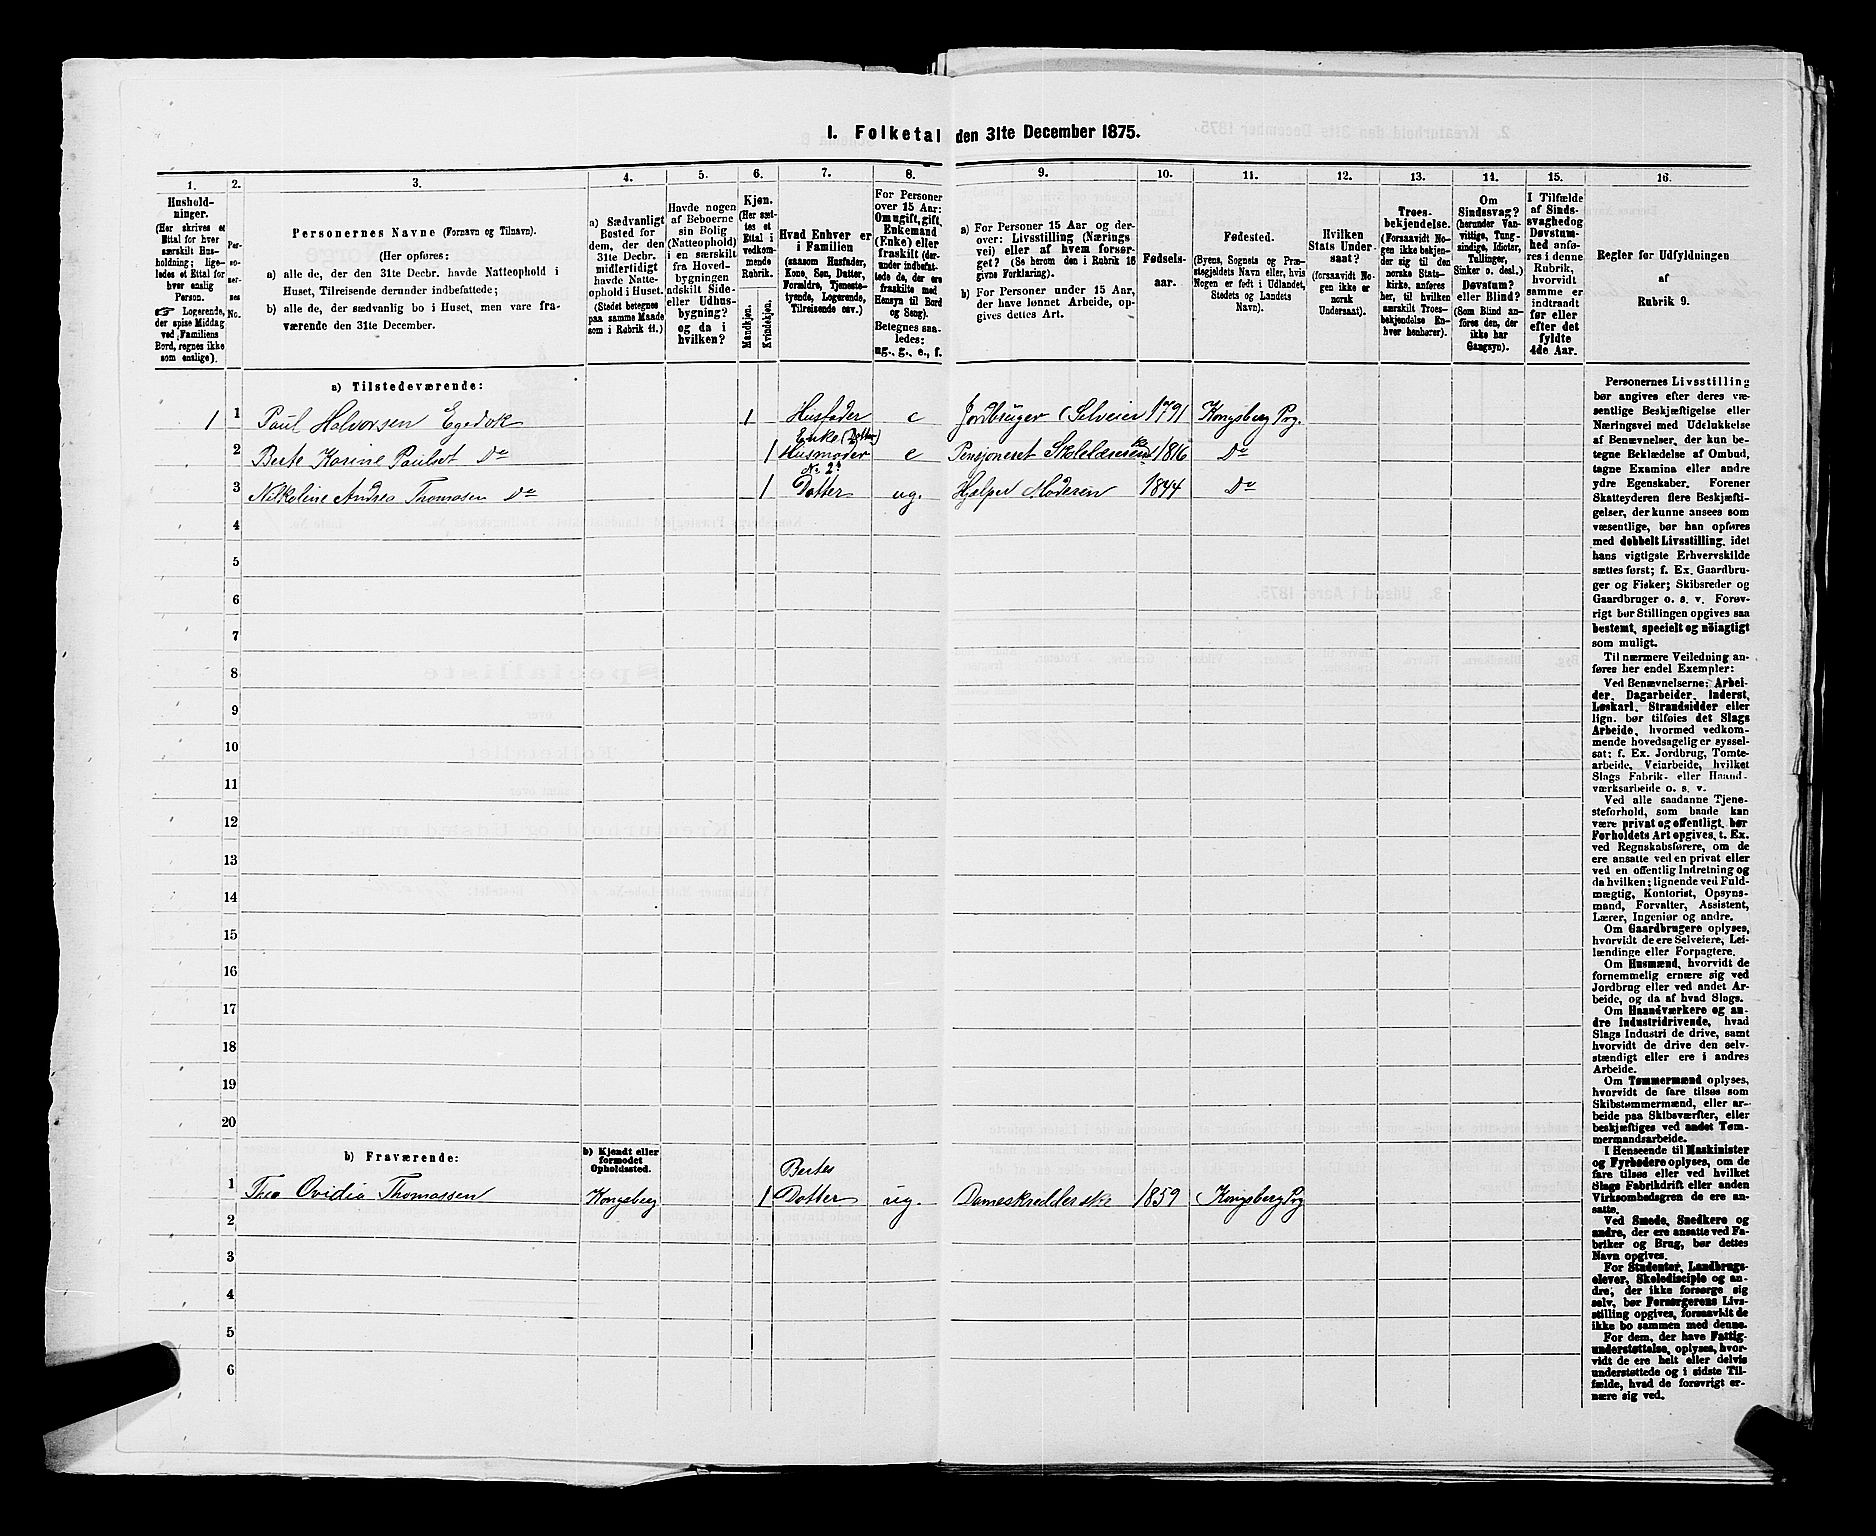 1. Folketal den 31te December 1875.
1.
2.
3.
4.
5.
6.
7.
8.
9.
10.
11.
12.
13.
14.
15.
16.
Hushold-
ninger.
(Her skrives et
Ettal for hver
særskilt Hus-
holdning; lige-
ledes et Ettal for
hver enslig
Person.
☞ Logerende,
der spise Middag
ved Familiens
Bord, regnes ikke
som enslige).
Per-
so-
ner-
nes
No.
Personernes Navne (Fornavn og Tilnavn).
(Her opføres:
a) alle de, der den 31te Decbr. havde Natteophold i
Huset, Tilreisende derunder indbefattede;
b) alle de, der sædvanlig bo i Huset, men vare fra-
værende den 31te December.
a) Sædvanligt
Bosted for
dem, der den
31te Decbr.
midlertidigt
havde Natte-
ophold i Huset.
(Stedet betegnes
paa samme Maade
som i Rubrik 11.)
Havde nogen
af Beboerne
sin Bolig
(Natteophold)
i en særskilt
fra Hoved-
bygningen
adskilt Side-
eller Udhus-
bygning?
og da i
hvilken?
Kjøn.
(Her sæt-
tes et
Ettal i
vedkom-
mende
Rubrik.
Mandkjøn.
Kvindekjøn.
Hvad Enhver er
i Familien
(saasom Husfader,
Kone, Søn, Datter,
Forældre, Tjeneste-
tyende, Logerende,
Tilreisende osv.)
For Personer
over 15 Aar:
Om ugift, gift,
Enkemand
(Enke) eller
fraskilt (der-
under indbefat-
tede de, der ere
fraskilte med
Hensyn til Bord
og Seng).
Betegnes saa-
ledes:
ug., g., e., f.
a) For Personer 15 Aar og der-
over: Livsstilling (Nærings
vei) eller af hvem forsør-
get? (Se herom den i Rubrik 16
givne Forklaring).
b) For Personer under 15 Aar,
der have lønnet Arbeide, op-
gives dettes Art.
Fødsels-
aar.
Fødested.
(Byens, Sognets og Præ-
stegjeldets Navn eller, hvis
Nogen er født i Udlandet,
Stedets og Landets
Navn).
Hvilken
Stats Under-
saat?
(forsaavidt No-
gen ikke er
norsk
Undersaat).
Troes-
bekjendelse.
(Forsaavidt No-
gen ikke bekjen-
der sig til den
norske Stats-
kirke, anføres
her, til hvilken
særskilt Troes-
bekjendelse En-
hver henhører).
Om
Sindssvag?
(herunder Van-
vittige, Tung-
sindige, Idioter,
Tullinger,
Sinker o. desl.)
Døvstum?
eller Blind?
(Som Blind an-
føres den, der
ikke har
Gangsyn).
I Tilfælde
af Sinds-
svaghed og
Døvstum-
hed anfø-
res i denne
Rubrik,
hvorvidt
samme er
indtraadt
før eller
efter det
fyldte
4de Aar.
Regler før Udfyldningen
af
Rubrik 9.
a) Tilstedeværende:
1 1 Paul Halvorsen Egedok 1 Husfader e Jordbruger (Selveier 1791 Kongsberg Prg.
Enke (Datter)
2 Berte Karine Paulset Do 1 Husmoder e Pensjoneret 1816 Do
No 2s
3 Nilkoline Andrea Thomasen Do 1 Datter ug. Hjælper Moderen 1844 Do
4
5
6
7
8
9
10
11
12
13
14
15
16
17
18
19
20
b) Fraværende:
b) Kjendt eller
formodet
Opholdssted.
Bertes
1 Thea Ovidia Thomassen Kongsberg 1 Datter ug. Dameskrædderske 1859 Kongsberg Prg
2
3
4
5
6
Personernes Livsstilling
bør angives efter deres væ-
sentlige Beskjæftigelse eller
Næringsvei med Udelukkelse
af Benævnelser, der kun be-
tegne Beklædelse af Ombud,
tagne Examina eller andre
ydre Egenskaber. Forener
Skatteyderen flere Beskjæfti-
gelser, der kunne ansees som
væsentlige, bør han opføres
med dobbelt Livsstilling, idet
hans vigtigste Erhvervskilde
sættes først; f. Ex. Gaardbru-
ger og Fisker; Skibsreder og
Gaardbruger o. s. v. Forøv-
rigt bør Stillingen opgives saa
bestemt, specielt og nøiagtigt
som muligt.
Til nærmere Veiledning an-
føres her endel Exempler:
Ved Benævnelserne: Arbei-
der, Dagarbeider, Inderst,
Løskarl, Strandsidder eller
lign. bør tilføies det Slags
Arbeide, hvormed vedkom-
mende hovedsagelig er syssel-
sat; f. Ex. Jordbrug, Tomte-
arbeide, Veiarbeide, hvilket
Slags Fabrik- eller Haand-
værksarbeide o. s. v.
Ved alle saadanne Tjene-
steforhold, som baade kan
være privat og offentligt, bør
Forholdets Art opgives, t. Ex.
ved Regnskabsførere, om de
ere ansatte ved en privat eller
ved en offentlig Indretning og
da hvilken; lignende ved Fuld-
mægtig, Kontorist, Opsyns-
mand, Forvalter, Assistent,
Lærer, Ingeniør og andre.
Om Gaardbrugere oplyses,
hvorvidt de ere Selveiere, Lei-
lændinge eller Forpagtere.
Om Husmænd, hvorvidt de
fornemmelig ernære sig ved
Jordbrug eller ved andet Ar-
beide, og da af hvad Slags.
Om Haandværkere og an-
dre Industridrivende, hvad
Slags Industri de drive, samt
hvorvidt de drive den selv-
stændigt eller ere i andres
Arbeide.
Om Tømmermænd oplyses,
hvorvidt de fare tilsøs som
Skibstømmermænd, eller ar-
beide paa Skibsværfter, eller
beskjæftiges ved andet Tøm-
mermandsarbeide.
I Henseende til Maskinister
og Fyrbødere oplyses, om de
fare tilsøs eller ved hvilket
Slags Fabrikdrift eller anden
Virksomhedsgren de ere an-
satte.
Ved Smede, Snedkere og
andre, der ere ansatte ved Fa-
briker og Brug, bør dettes
Navn opgives.
For Studenter, Landbrugs-
elever, Skoledisciple og an-
dre, der ikke forsørge sig
selv, bør Forsørgerens Livs-
stilling opgives, forsaavidt de
ikke bo sammen med denne.
For dem, der have Fattig-
understøttelse, oplyses, hvor-
vidt de ere helt eller delvis
understøttede og i sidste Til-
fælde, hvad de forøvrigt er-
nære sig ved.